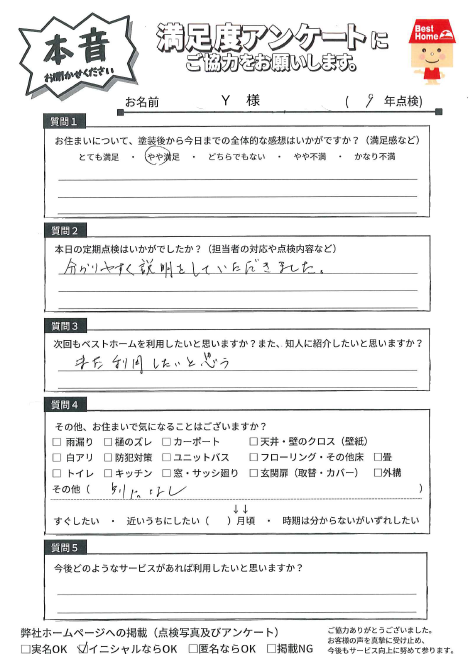 本音
お聞かせください
満足度アンケートに
ご協力をお願いします。
Best Home
お名前 Y 様 ( 9 年点検)
質問1
お住まいについて、塗装後から今日までの全体的な感想はいかがですか?(満足感など)
とても満足 ・ やや満足 ・ どちらでもない ・ やや不満 ・ かなり不満
質問2
本日の定期点検はいかがでしたか?(担当者の対応や点検内容など)
分かりやすく説明をしていただきました。
質問3
次回もベストホームを利用したいと思いますか?また、知人に紹介したいと思いますか?
また利用したいと思う
質問4
その他、お住まいで気になることはございますか?
□ 雨漏り □ 樋のズレ □ カーポート □ 天井・壁のクロス(壁紙)
□ 白アリ □ 防犯対策 □ ユニットバス □ フローリング・その他床 □ 畳
□ トイレ □ キッチン □ 窓・サッシ廻り □ 玄関扉(取替・カバー) □ 外構
その他( 別になし )
↓↓
すぐしたい ・ 近いうちにしたい( )月頃 ・ 時期は分からないがいずれしたい
質問5
今後どのようなサービスがあれば利用したいと思いますか?
弊社ホームページへの掲載(点検写真及びアンケート)
□実名OK ☑イニシャルならOK □匿名ならOK □掲載NG
ご協力ありがとうございました。
お客様の声を真摯に受け止め、
今後もサービス向上に努めて参ります。